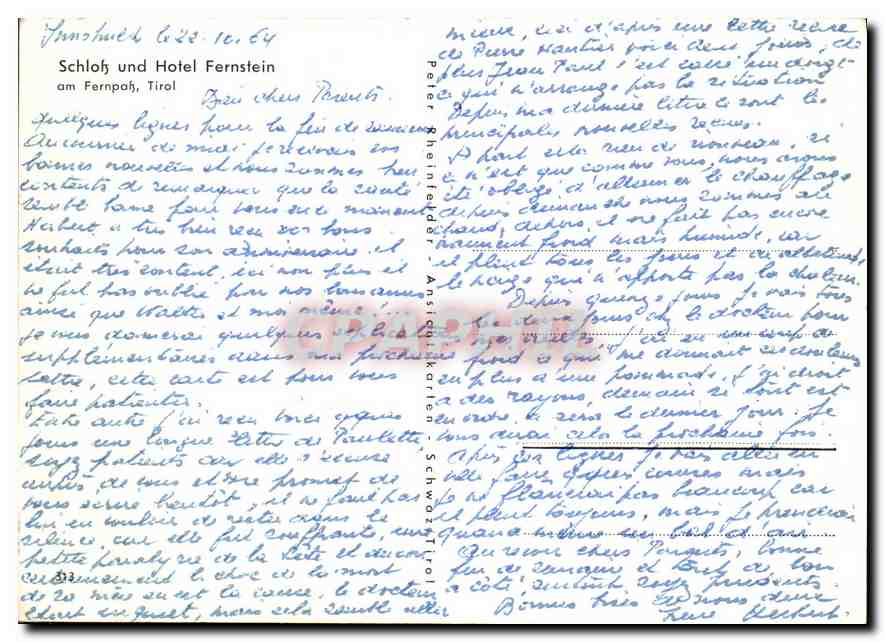 Innsbruck le 22.10.64
Schloß und Hotel Fernstein
am Fernpaß, Tirol
Bien chers Parents.
Quelques lignes pour la fin de semaine
bonnes nouvelles et nous sommes bien
contents de remarquer que la santé
semble bonne pour vous en ce moment
Hubert a très bien reçu vos bons
souhaits pour son anniversaire il
était très content, ici non plus il
ne fut pas oublié par nos bons amis
ainsi que Walter et moi même!...
je vous donnerai quelques
supplémentaires dans ma prochaine
lettre, cette carte est pour vous
faire patienter.
Entre autre j'ai reçu voici quelques
jours une longue lettre de Paulette,
soyez patients car elle s'excuse
auprès de vous et me promet de
vous écrire bientôt, il ne faut pas
lui en vouloir de rester dans le
silence, car elle fut souffrante, une
petite paralysie de la tête et du cou
certainement le choc de la mort
de sa mère en est la cause, le docteur
était inquiet, mais cela semble aller
313
Peter Rheinfelder - Ansichtskarten - Schwaz Tirol
mieux, ici d'après une lettre reçue
de Pierre voici deux jours, de
plus Jean Paul s'est cassé un doigt
ce qui n'arrange pas la situation
Depuis ma dernière lettre ce sont les
principales nouvelles reçues.
A part cela rien de nouveau, si
ce n'est que comme vous, nous avons
été obligé d'allumer le chauffage
depuis dimanche nous sommes au
chaud, dehors, il ne fait pas encore
vraiment froid mais humide, car
il pleut tous les jours et en altitude
la neige qui n'apporte pas la chaleur.
Depuis quinze jours je vais tous
les deux jours chez le docteur pour
en plus d'une pommade, j'ai droit
à des rayons, demain si tout est
en ordre, ce sera le dernier jour. Je
vous dirai cela la prochaine fois.
Après ces lignes je vais aller en
ville faire quelques courses mais
je ne flânerai pas beaucoup car
il pleut toujours, mais je prendrai
quand même un bol d'air
Au revoir chers Parents, bonne
fin de semaine et tout de bon
à côté surtout soyez prudents.
Bonnes bises de nous deux
Irène Hubert.
CPAPHIL